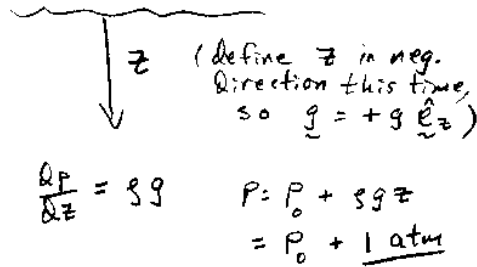 z (define z in neg.
direction this time,
so g = +g ê_z)
∂p/∂z = ρg P = P₀ + ρgz
= P₀ + 1 atm